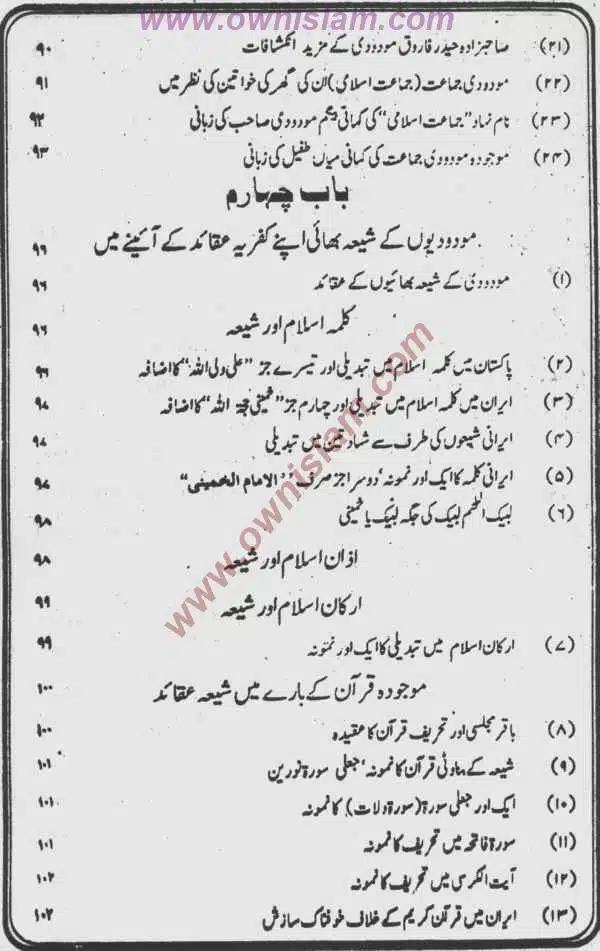 www.ownislam.com
(۲۱) صاحبزادہ حیدر فاروق مودودی کے مزید انکشافات ۹۰
(۲۲) مودودی جماعت (جماعت اسلامی) ان کی گھر کی خواتین کی نظر میں ۹۱
(۲۳) نام نہاد "جماعت اسلامی" کی کہانی بیگم مودودی صاحب کی زبانی ۹۲
(۲۴) موجودہ مودودی جماعت کی کہانی میاں طفیل کی زبانی ۹۳
باب چہارم
مودودیوں کے شیعہ بھائی اپنے کفریہ عقائد کے آئینے میں ۹۶
(۱) مودودی کے شیعہ بھائیوں کے عقائد ۹۶
کلمہ اسلام اور شیعہ ۹۶
(۲) پاکستان میں کلمہ اسلام میں تبدیلی اور تیسرے جز "علی ولی اللہ" کا اضافہ ۹۶
(۳) ایران میں کلمہ اسلام میں تبدیلی اور چہارم جز "خمینی حجۃ اللہ" کا اضافہ ۹۷
(۴) ایرانی شیعوں کی طرف سے شہادتین میں تبدیلی ۹۷
(۵) ایرانی کلمہ کا ایک اور نمونہ' دوسرا جز صرف "الامام الخمینی" ۹۷
(۶) لبیک اللھم لبیک کی جگہ لبیک یا خمینی ۹۸
اذان اسلام اور شیعہ ۹۸
ارکان اسلام اور شیعہ ۹۹
(۷) ارکان اسلام میں تبدیلی کا ایک اور نمونہ ۹۹
موجودہ قرآن کے بارے میں شیعہ عقائد ۱۰۰
(۸) باقر مجلسی اور تحریف قرآن کا عقیدہ ۱۰۰
(۹) شیعہ کے بناوٹی قرآن کا نمونہ' جعلی سورۃ نورین ۱۰۱
(۱۰) ایک اور جعلی سورۃ (سورۃ ولات) کا نمونہ ۱۰۱
(۱۱) سورۃ فاتحہ میں تحریف کا نمونہ ۱۰۱
(۱۲) آیت الکرسی میں تحریف کا نمونہ ۱۰۲
(۱۳) ایران میں قرآن کریم کے خلاف خوفناک سازش ۱۰۲
www.ownislam.com